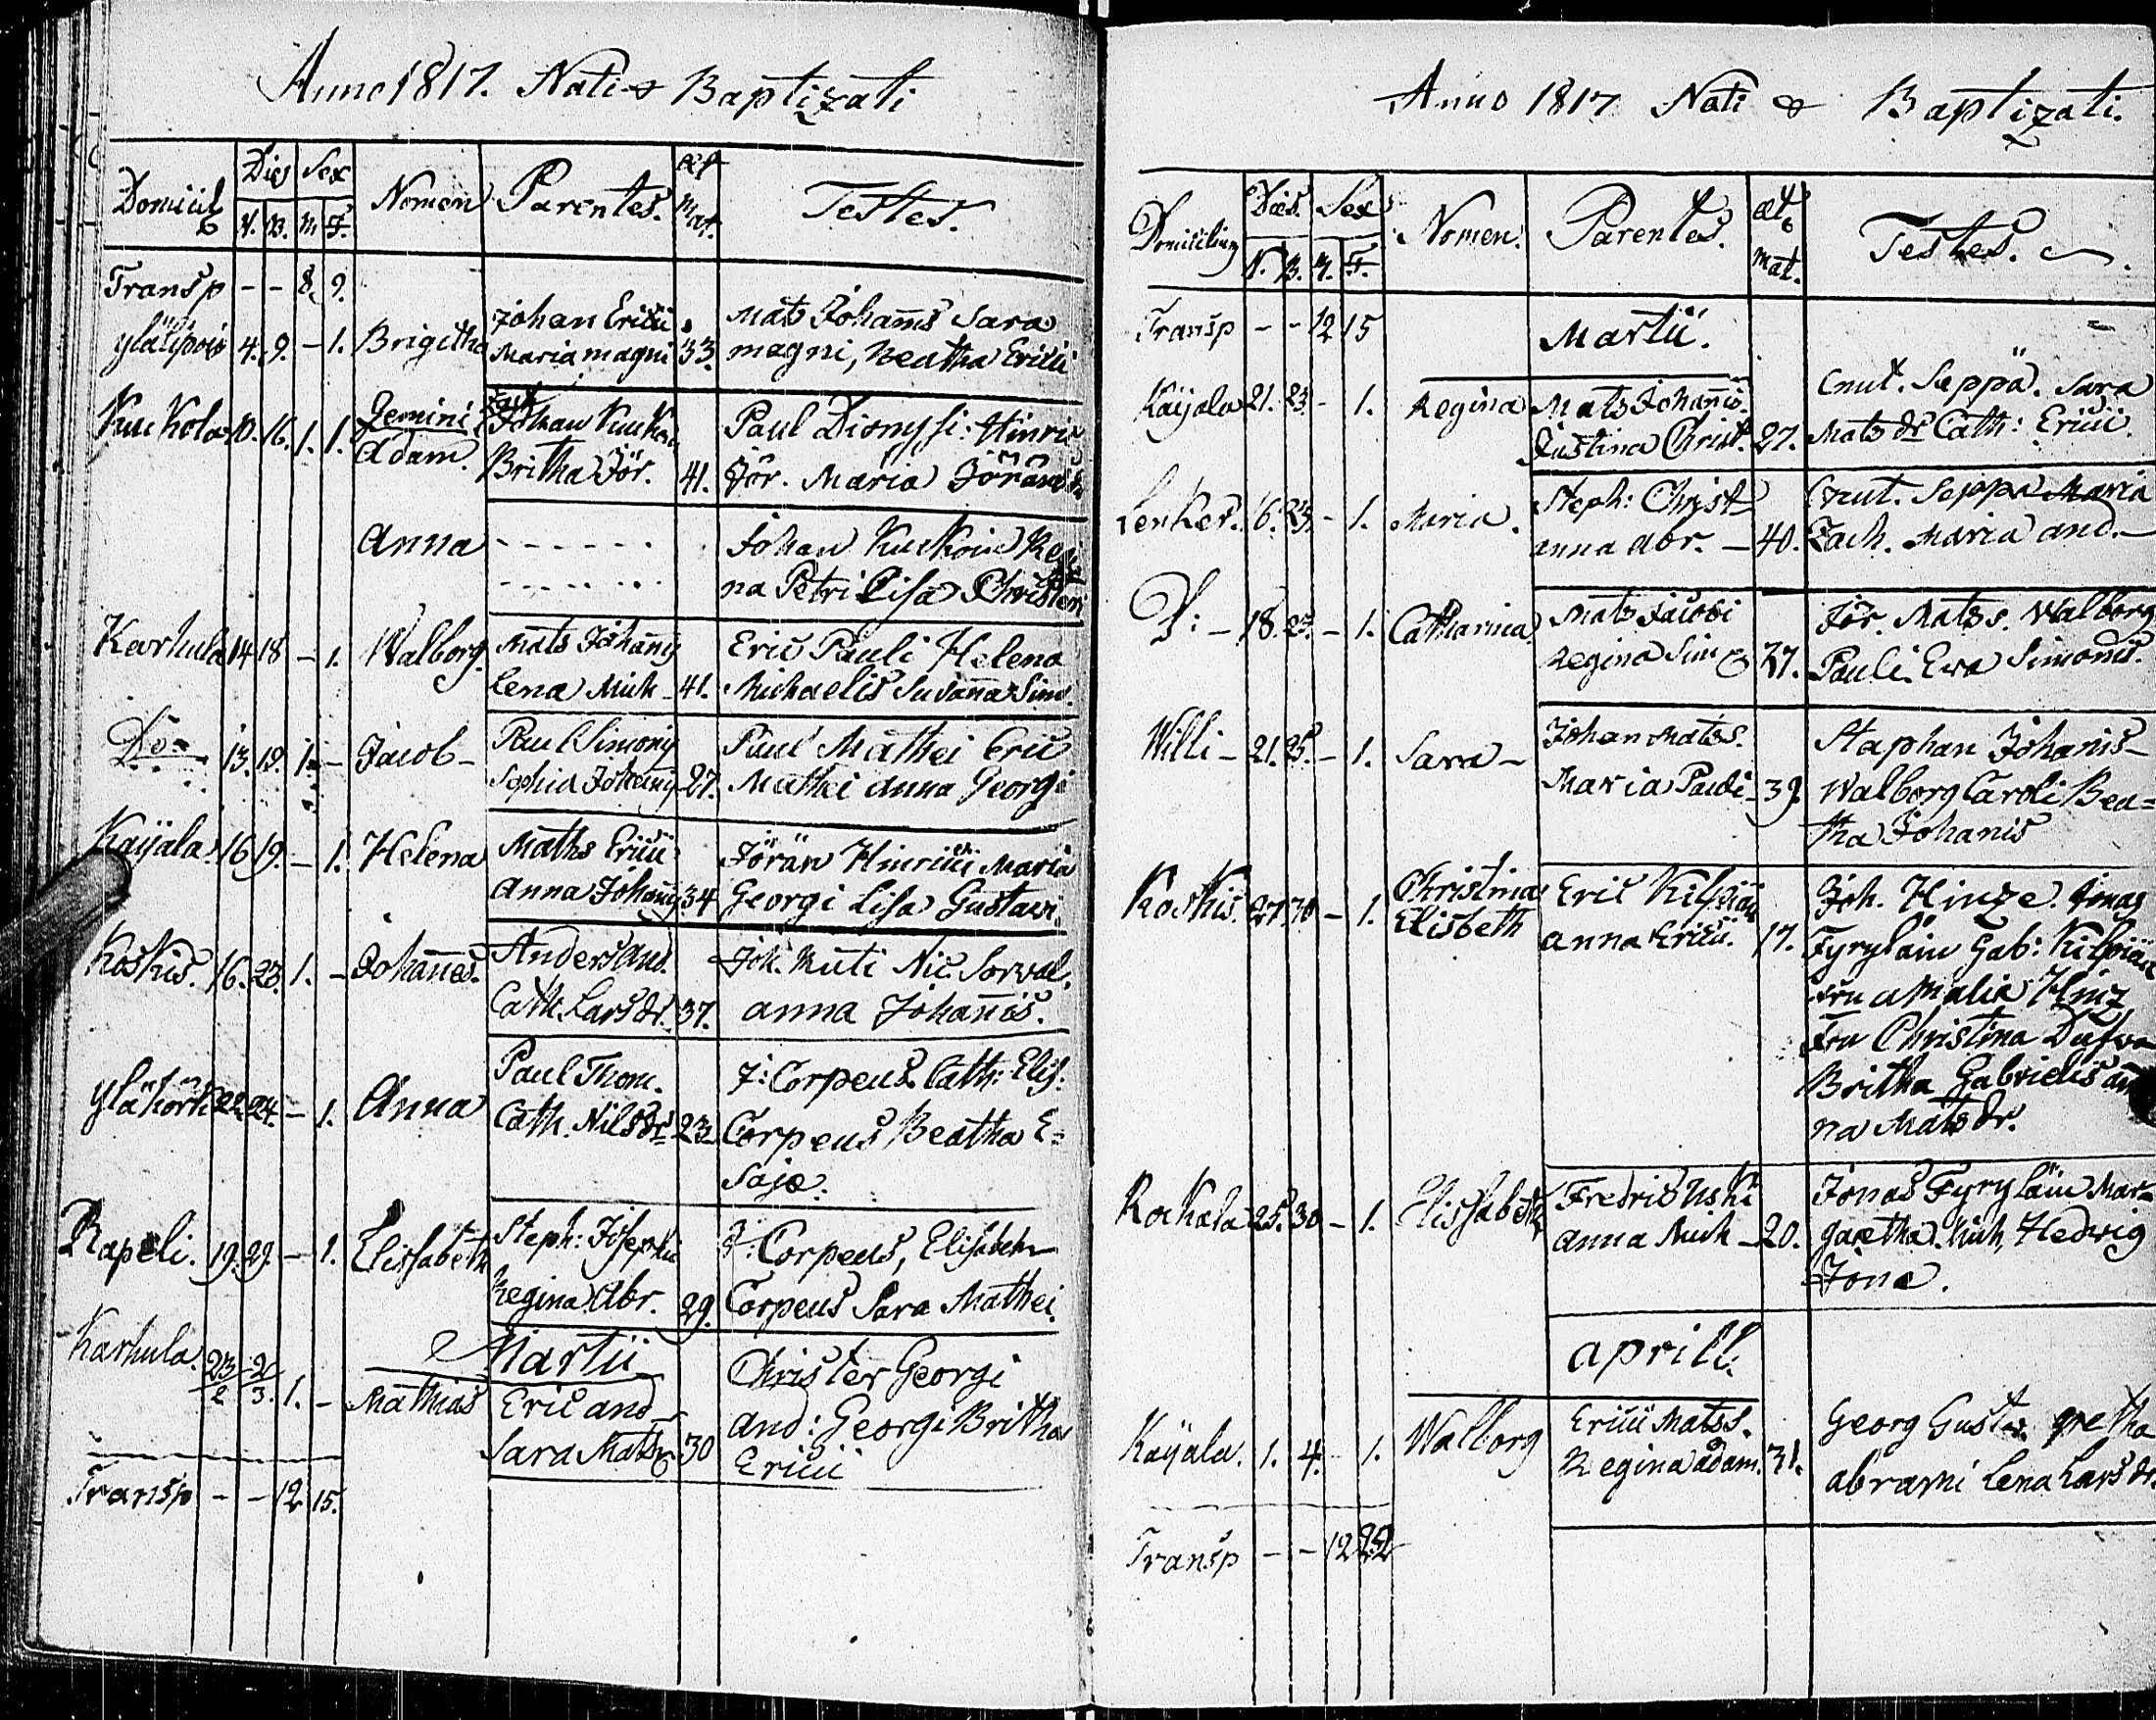 Anno 1817. Nati & Baptizati
Domicil Dies Sex Nomen Parentes. æt Mat. Testes.
N. B. M F.
Transp - - 8. 9.
4. 9. - 1. Brigitha Johan Erici Maria Magni 33. Mats Johannis Sara
Magni, Beatha Erici
Kuukola 10. 16. 1. 1. Gemini Johan Paul Dionysi: Hinric
Adam. Britha Jör. 41. Jör. Maria
Anna - - - - - - Johan Kuukoin Regi
- - - - - - na Petri Lisa Christeri
Karhula 14 18 - 1. Walborg. Mats Johannis Eric Pauli Helena
Lena Mich - 41. Michaelis Susanna Sim.
Do 13. 19. 1. - Jacob - Paul Simonis Paul Mathei Eric
Sophia Johannis 27. Mathei Anna Georgi
Käijala 16 19. - 1. Helena Maths Erici Jöran Hinrici Maria
Anna Johannis 34 Georgi Lisa Gustavi
Koskis. 16. 23. 1. - Johannes. Anders And. Joh. Ruti Nic Sorval.
Cath. Lars dr. 37. Anna Johannis.
22. 24. - 1. Anna Paul Thom. J: Corpeus Cath: Elis:
Cath. Nils dr 23. Corpeus Beatha E=
sajæ.
Rapeli. 19. 29. - 1. Elissabeth Steph: Josephi J: Corpeus, Elisabeth
Regina Abr. 29. Corpeus Sara Mathei.
Martii
Karhula. 23/2 2/3. 1. - Mathias Eric And Christer Georgi
Sara Mats 30 And: Georgi Britha
Erici
Transp - - 12 15.
Anno 1817 Nati & Baptizati.
Domicilium Dies. Sex Nomen. Parentes. æt. Mat. Testes.
N. B. M. F.
Transp - - 12 15 Martii.
Käijala 21. 23. - 1. Regina Mats Johannis. Cnut. Seppä. Sara
Justina Christ. 27. Mats dr Cath: Erici.
Lenker. 16. 23. - 1. Maria. Steph: Christ Cnut. Seppä Maria
Anna Abr. - 40. Zach. Maria And. -
D: - 18. 23. - 1. Catharina Mats Jacobi Jör. Mats s. Walborg
Regina Sim 27. Pauli. Eva Simonis.
Willi - 21. 25. - 1. Sara - Johan Mats s. Staphan Johanis -
Maria Pauli - 39. Walborg Caroli Bea=
tha Johanis
Koskis. 27. 30 - 1. Christina Elisbeth Eric Joh. Hinze. Jonas
Anna Erici. 17. Fyryläin Gab:
Fru Amalia Hinz
Fru Christina
Britha Gabrielis An
na Mats dr.
Rokala 25. 30 - 1. Elissabeth Fredric Uski Jonas Fyryläin Mar=
Anna Mich - 20. garetha Mich, Hedvig
Jona.
Aprill.
Käijala. 1. 4. - 1. Walborg Erici Mats s. Georg Gust. Gretha
Regina Adam. 31. Abrami Lena Lars dr.
Transp - - 12 22